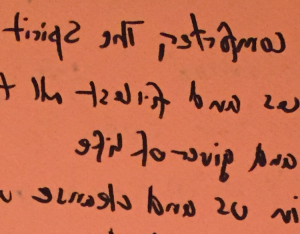 comforter, The Spirit
ces and fillest all t
and giver of life
in us and cleanse u